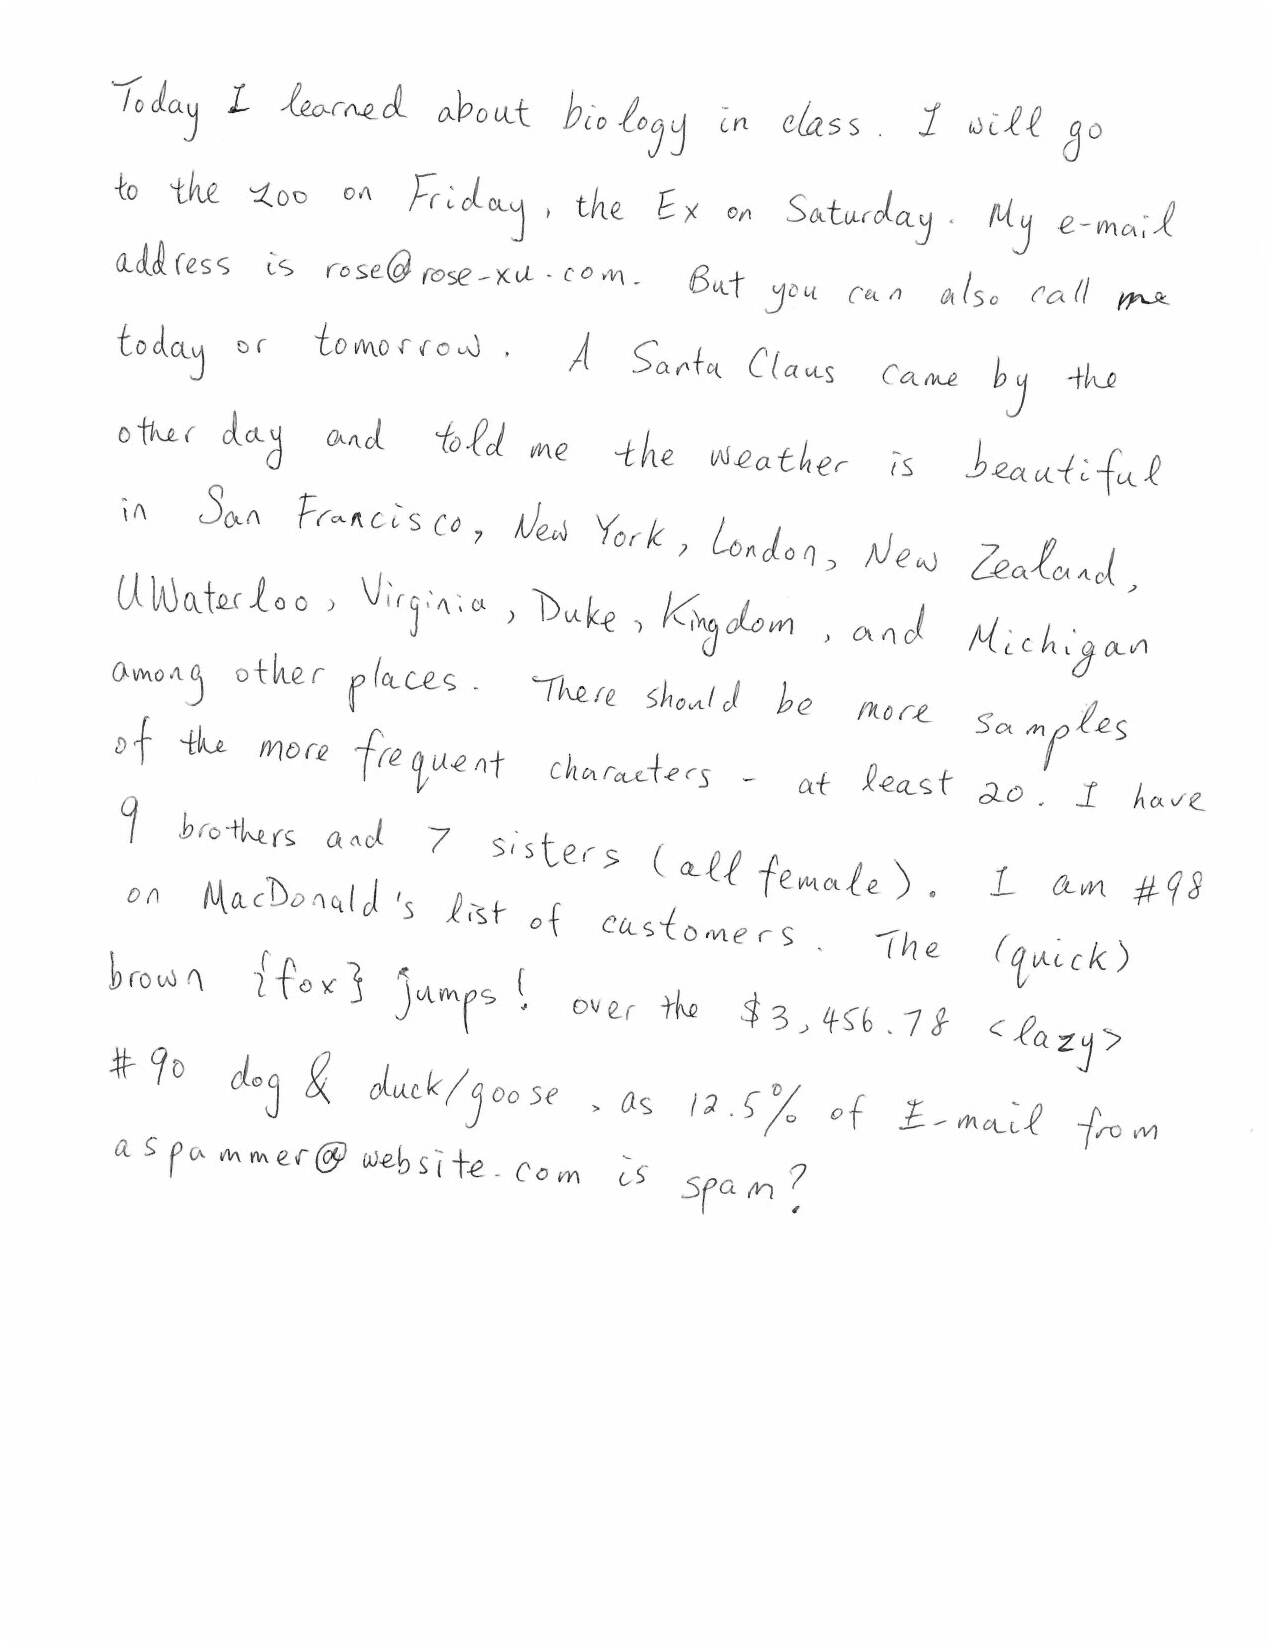 Today I learned about biology in class. I will go
to the zoo on Friday, the Ex on Saturday. My e-mail
address is rose@rose-xu.com. But you can also call me
today or tomorrow. A Santa Claus came by the
other day and told me the weather is beautiful
in San Francisco, New York, London, New Zealand,
UWaterloo, Virginia, Duke, Kingdom, and Michigan
among other places. There should be more samples
of the more frequent characters - at least 20. I have
9 brothers and 7 sisters (all female). I am #98
on MacDonald's list of customers. The (quick)
brown {fox} jumps! over the $3,456.78 <lazy>
#90 dog & duck/goose, as 12.5% of E-mail from
aspammer@website.com is spam?